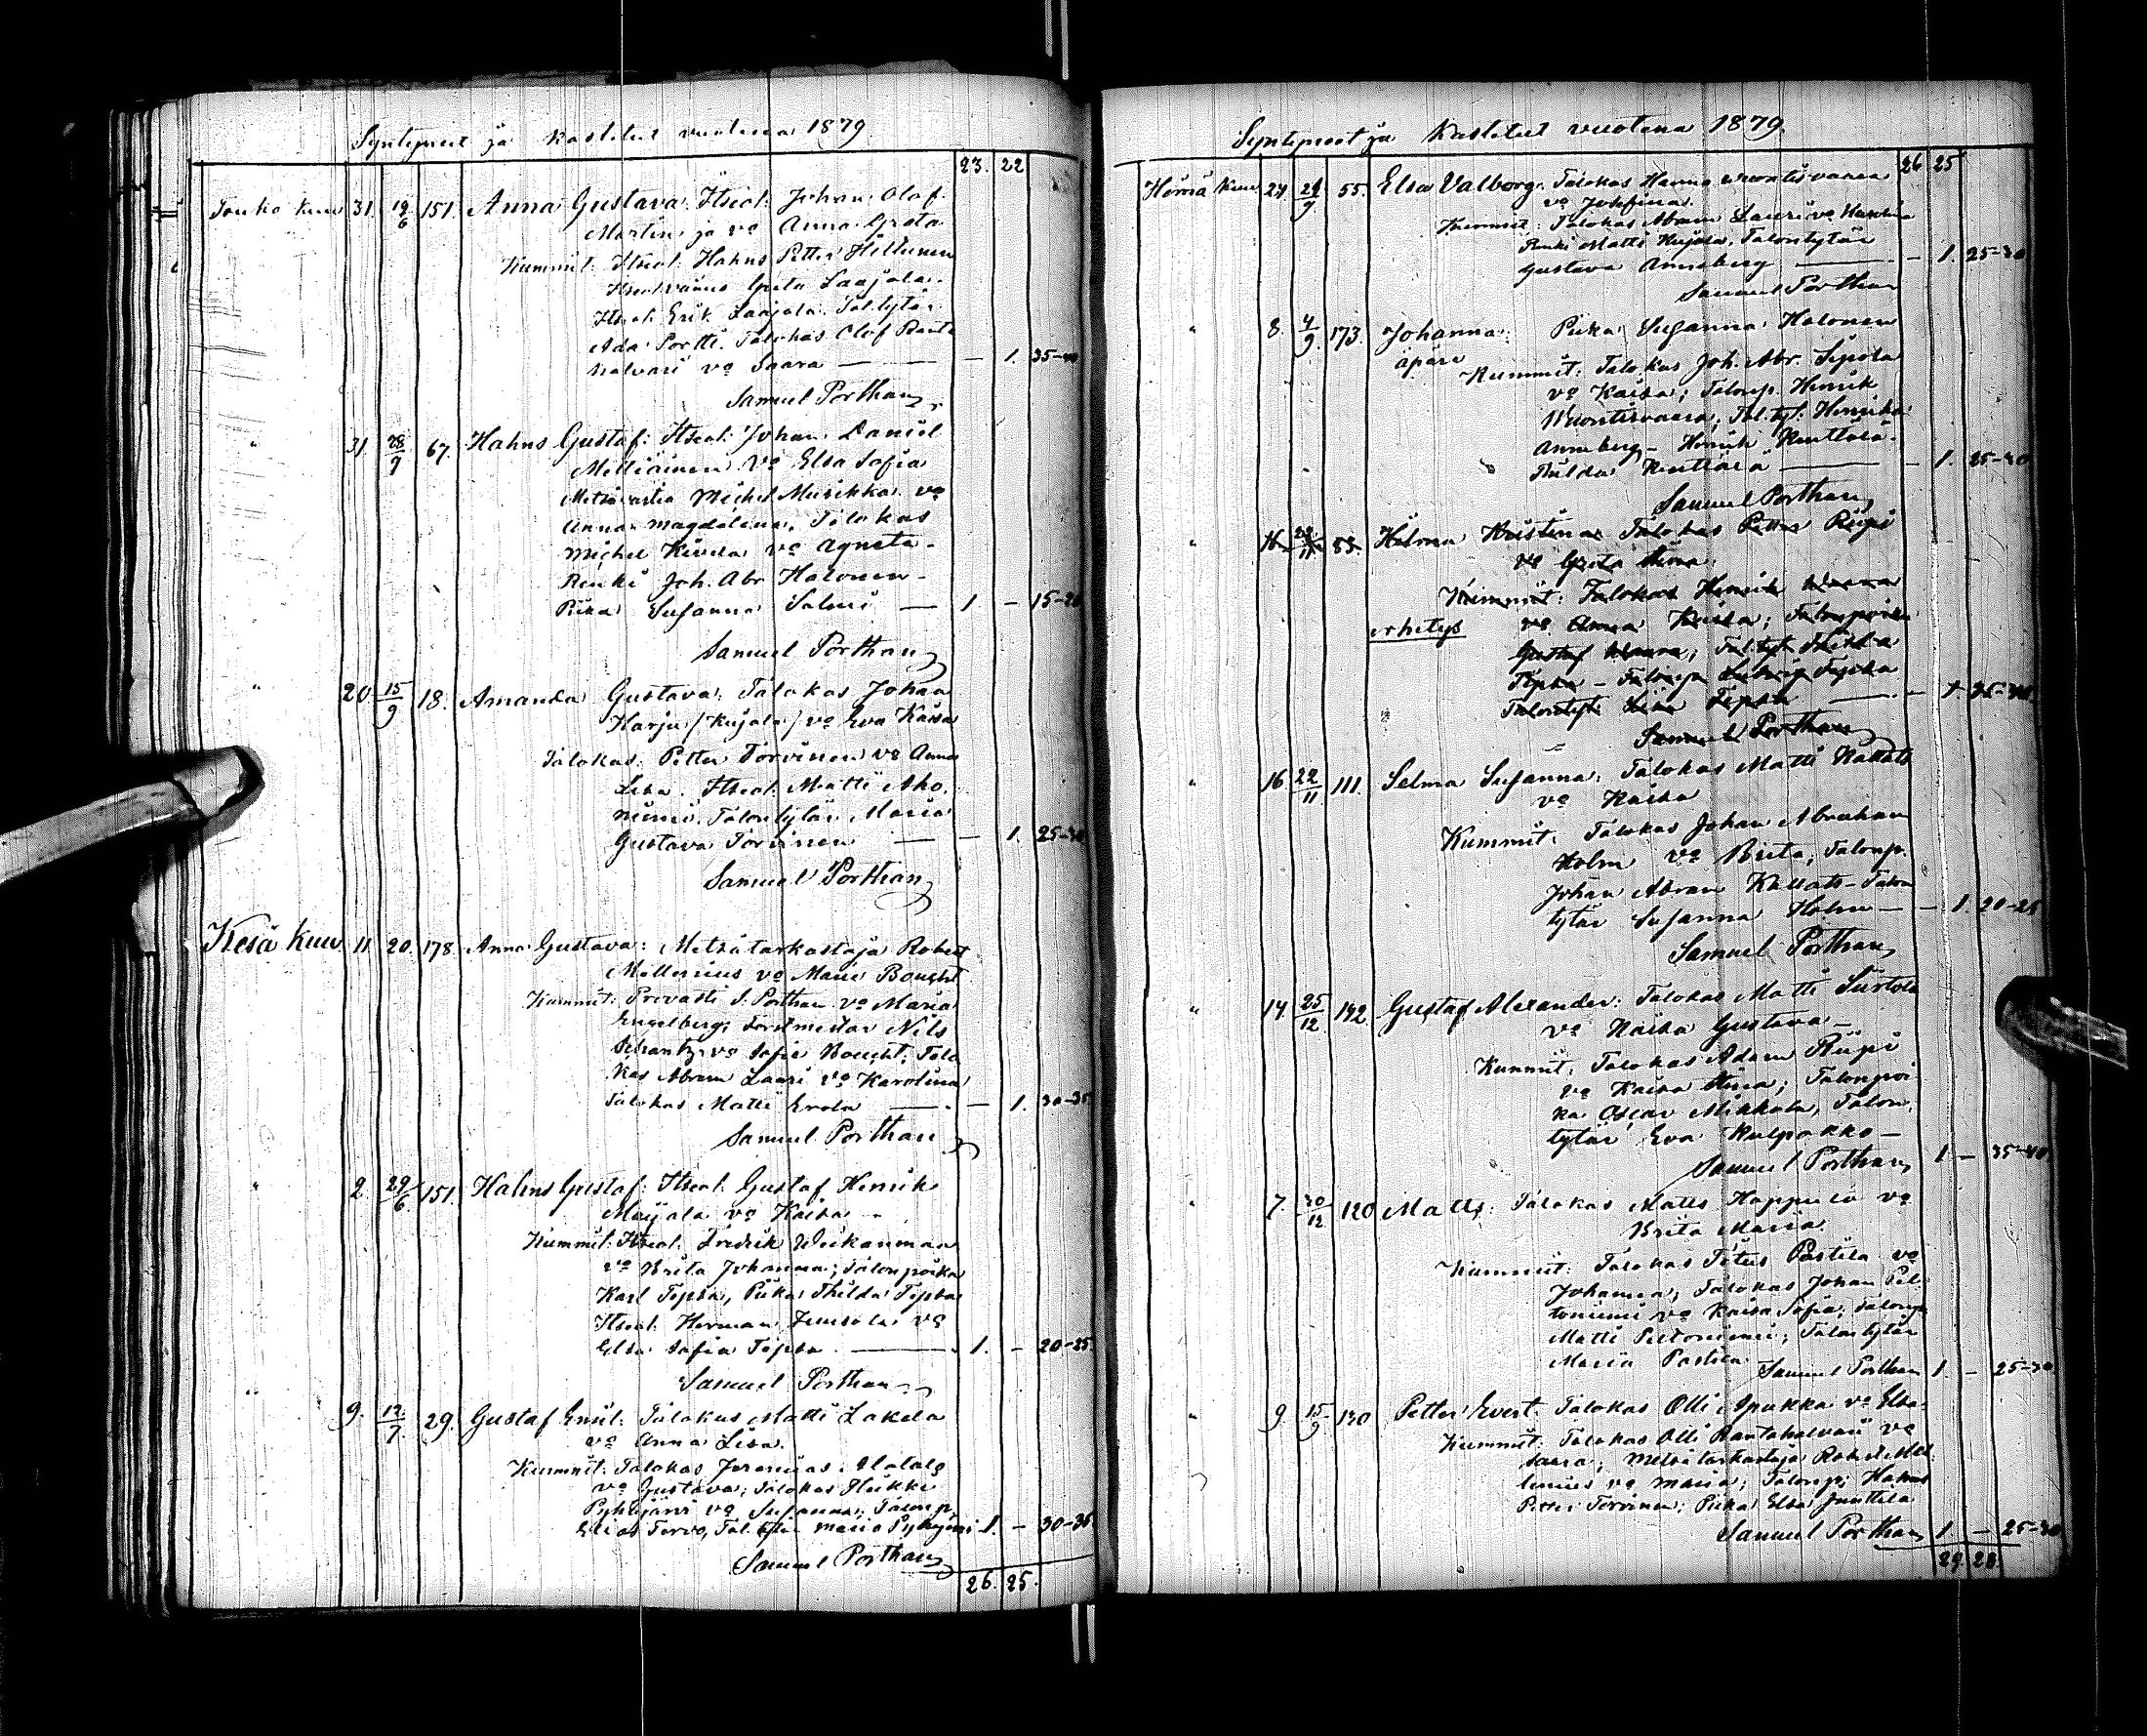 Syntyneet ja kastetut vuotena 1879
23. 22
Touko kuu 31. 19/6 151. Anna Gustava: Itseol. Johan Olof
Martin ja vo Anna Greta
Kummit: Itseol. Hahns Petter Hiltunen
Greta Laajala.
Itseol. Erik Laajala. Tal.tytär
Ada Portti. Talokas Olof Ranta
halvari vo Saara — — 1. 35-40
Samuel Porthan
" 31. 28/9 67. Hahns Gustaf: Itseol. Johan Daniel
vo Elsa Sofia
Michel Musikka vo
Anna Magdalena. Talokas
Michel Kivela vo Agneta -
Renki Joh. Abr. Halonen -
Piika Susanna Salmi — 1 - 15-20
Samuel Porthan
" 20. 15/9 18. Amanda Gustava: Talokas Johan
Harju /Kujala/ vo Eva Kaisa
Talokas Petter Torvinen vo Anna
Lisa. Itseol. Matti Aho
niemi. Talontytär Maria
Gustava Torvinen — — 1. 25-30
Samuel Porthan
Kesä kuu 11. 20. 178. Anna Gustava: Metsätarkastaja Robert
Mellenius vo Maria Boucht
Kummit: Provasti S. Porthan vo Maria
Engelberg; Forstmestar Nils
vo Sofie Boucht; Talo
kas Abram Laari vo Karolina
Talokas Matti Erola — — 1. 30-35
Samuel Porthan
" 2. 29/6 151. Hahns Gustaf: Itseol. Gustaf Henrik
Maijala vo Kaisa -
Kummit: Itseol. Fredrik Weikanmaa
vo Brita Johanna; Talonpoika
Karl Tepsa, Piika Thilda Tepsa
Itseol. Herman vo
Elsa Sofia Tepsa — 1. - 20-25.
Samuel Porthan
" 9. 12/7 29. Gustaf Emil: Talokas Matti Lakela
vo Anna Lisa.
Kummit: Talokas Jeremias Alatalo
vo Gustava; Talokas Heikki
Pyhäjärvi vo Susanna; Talonp.
Elias Tervo, Tal.tytär Maria Pyhäjärvi 1. - 30-35.
Samuel Porthan
26. 25.
Syntyneet ja kastetut vuotena 1879
26 25
Heinä kuu 24. 29/9 55. Elsa Valborg: Talokas Hannu Wuontisvaara
vo Josefina.
Kummit: Talokas Abram Lauri vo Karolina
Renki Matti Kujala. Talontytär
Gustava Anneberg — - 1. 25-30
Samuel Porthan
" 8. 4/9 173. Johanna: Piika Susanna Halonen
äpärä
Kummit: Talokas Joh. Abr. Sipola
vo Kaisa; Talonp. Henrik
Wuontisvaara; Tal.tyt. Henrika
Anneberg - Henrik Kenttälä.
Hulda Kenttälä — - 1. 25-30
Samuel Porthan
" 16. 22/11 83. Helena Kristina: Talokas Petter Riipi
vo Greta Stina.
Kummit: Talokas Henrik
vo Anna Kaisa; Talonpoika
erhetys
Gustaf; Tal.tyt. Thilda
Tepsa - Talonp. Tepsa
Talontyt. Lisa Tepsa — - 1 35-40
Samuel Porthan
" 16. 22/11 111. Selma Susanna: Talokas Matti Kallatti
vo Kaisa
Kummit: Talokas Johan Abraham
Holm vo Brita; Talonp.
Johan Abram Kallatti - Talon
tytär Susanna Holm — - 1. 20-25
Samuel Porthan
" 14. 25/12 142. Gustaf Alexander: Talokas Matti Siirtola
vo Kaisa Gustava -
Kummit: Talokas Adam Riipi
vo Kaisa Stina; Talonpoi
ka Oscar Mikkola; Talon
tytär Eva Kulpakko -
Samuel Porthan 1 - 35-40
" 7. 30/12 120 Matts: Talokas Matts Happula vo
Brita Maria.
Kummit: Talokas Petter Pastila vo
Johanna; Talokas Johan Pel
toniemi vo Kaisa Sofia; Talonp.
Matti Peltoniemi; Talontytär
Maria Pastila
Samuel Porthan 1. - 25-30
" 9 15/9 130 Petter Evert: Talokas Olli Apukka vo Elsa.
Kummit: Talokas Olli Rantahalvari vo
Saara; Metsätarkastaja Robert Mel
lenius vo Maria; Talonp. Hahns
Petter Torvinen; Piika Elsa Junttila
Samuel Porthan 1 - 25-30
29. 28.